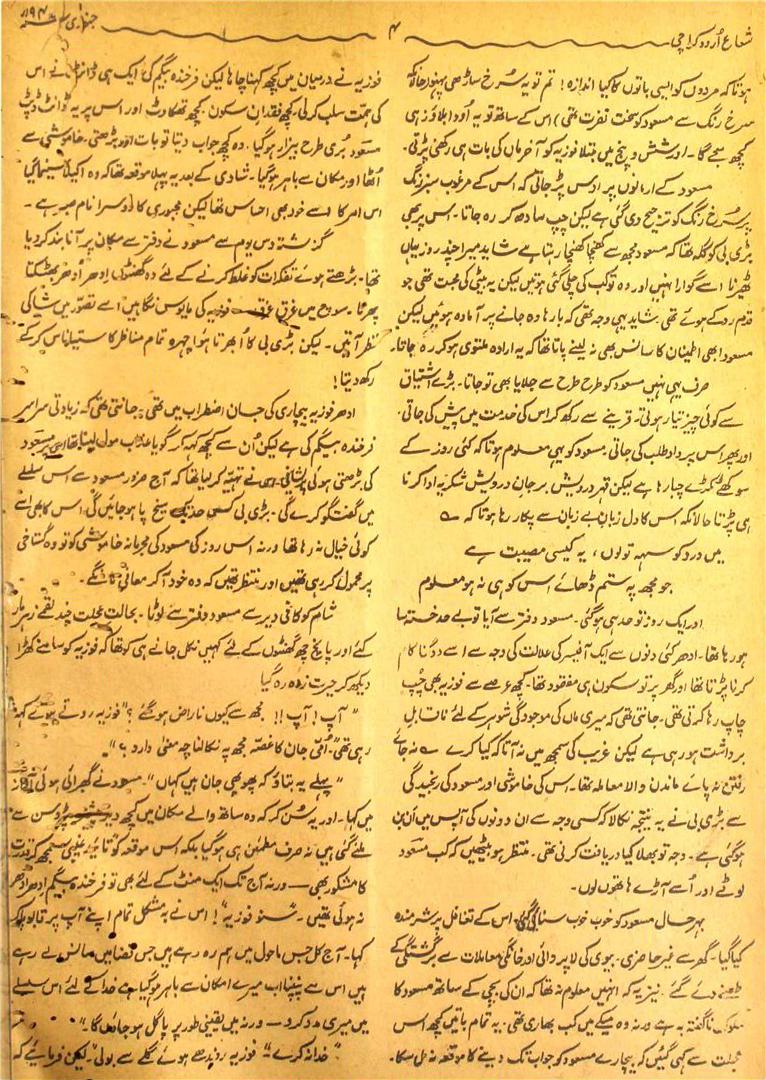 شعاع اُردو کراچی
۴
جنوری
ہوتا کہ مردوں کو ایسی باتوں کا کیا اندازہ! تم تو یہ سُرخ ساڑھی پہنو (حالانکہ
سرخ رنگ سے مسعود کو سخت نفرت تھی) اس کے ساتھ تو یہ اُودا بلاؤز ہی
کچھ سجے گا۔ اور شش و پنج میں مبتلا فوزیہ کو آخر ماں کی بات ہی رکھنی پڑتی۔
مسعود کے ارمانوں پر اوس پڑ جاتی کہ اس کے مرغوب سبز رنگ
پر سُرخ رنگ کو ترجیح دی گئی ہے لیکن چپ سادھ کر رہ جاتا۔ اس پر بھی
بڑی بی کو گلہ تھا کہ مسعود مجھ سے کھنچا کھنچا رہتا ہے شاید میرا چند روز یہاں
ٹھہرنا اسے گوارا نہیں اور وہ تو کب کی چلی گئی ہوتیں لیکن یہ بیٹی کی محبت تھی جو
قدم روکے ہوئے تھی۔ شاید یہی وجہ تھی کہ بارہا وہ جانے پر آمادہ ہوئیں لیکن
مسعود ابھی اطمینان کا سانس بھی نہ لینے پاتا تھا کہ یہ ارادہ ملتوی ہو کر رہ جاتا۔
صرف یہی نہیں مسعود کو طرح طرح سے جلایا بھی تو جاتا۔ بڑے اشتیاق
سے کوئی چیز تیار ہوتی۔ قرینے سے رکھ کر اس کی خدمت میں پیش کی جاتی
اور پھر اس پر داد طلب کی جاتی۔ مسعود کو یہی معلوم ہوتا کہ کئی روز کے
سوکھے ٹکڑے چبا رہا ہے لیکن قہر درویش بر جان درویش شکریہ ادا کرنا
ہی پڑتا حالانکہ اس کا دل زبانِ بے زبان سے پکار رہا ہوتا کہ ؎
میں درد کو سہہ تو لوں، یہ کیسی مصیبت ہے
جو مجھ پہ ستم ڈھائے اس کو ہی نہ ہو معلوم
اور ایک روز تو حد ہی ہوگئی۔ مسعود دفتر سے آیا تو بے حد خستہ سا
ہو رہا تھا۔ ادھر کئی دنوں سے ایک آفیسر کی علالت کی وجہ سے اسے دوگنا کام
کرنا پڑتا تھا اور گھر پر تو سکون ہی مفقود تھا۔ کچھ عرصے سے فوزیہ بھی چُپ
چاپ رہا کرتی تھی۔ جانتی تھی کہ میری ماں کی موجودگی شوہر کے لئے ناقابلِ
برداشت ہو رہی ہے لیکن غریب کی سمجھ میں نہ آتا کہ کیا کرے ؎ نہ جائے
رفتن نہ پائے ماندن والا معاملہ تھا۔ اس کی خاموشی اور مسعود کی رنجیدگی
سے بڑی بی نے یہ نتیجہ نکالا کہ کسی وجہ سے ان دونوں کی آپس میں اَن بن
ہوگئی ہے۔ وجہ تو بھلا کیا دریافت کرنی تھی۔ منتظر ہو بیٹھیں کہ کب مسعود
لوٹے اور اُسے آڑے ہاتھوں لوں۔
بہرحال مسعود کو خوب خوب سنائی گئی۔ اس کے تغافل پر شرمندہ
کیا گیا۔ گھر سے غیر حاضری۔ بیوی کی لاپروائی اور خانگی معاملات سے برگشتگی کے
طعنے دئے گئے۔ نیز یہ کہ انہیں معلوم نہ تھا کہ ان کی بچی کے ساتھ مسعود کا
سلوک ناگفتہ بہ ہے ورنہ وہ میکے میں کب بھاری تھی۔ یہ تمام باتیں کچھ اس
عجلت سے کہی گئیں کہ بیچارے مسعود کو جواب تک دینے کا موقعہ نہ مل سکا۔
فوزیہ نے درمیان میں کچھ کہنا چاہا لیکن فرخندہ بیگم کی ایک ہی ڈانٹ نے اس
کی ہمت سلب کر لی۔ کچھ فقدانِ سکون کچھ تھکاوٹ اور اس پر یہ ڈانٹ ڈپٹ
مسعود بُری طرح بیزار ہوگیا۔ وہ کچھ جواب دیتا تو بات اور بڑھتی۔ خاموشی سے
اُٹھا اور مکان سے باہر ہوگیا۔ شادی کے بعد یہ پہلا موقعہ تھا کہ وہ اکیلا سینما گیا
اس امر کا اسے خود بھی احساس تھا لیکن مجبوری کا دوسرا نام صبر ہے۔
گزشتہ دس یوم سے مسعود نے دفتر سے مکان پر آنا بند کر دیا
تھا۔ بڑھتے ہوئے تفکرات کو غلط کرنے کے لئے وہ گھنٹوں اِدھر اُدھر بھٹکتا
پھرتا۔ سوچ میں غرق فوزیہ کی مایوس نگاہیں اسے تصوّر میں شاکی
نظر آتیں۔ لیکن بڑی بی کا اُبھرتا ہوا چہرہ تمام مناظر کا ستیاناس کر کے
رکھ دیتا!
ادھر فوزیہ بیچاری کی جان اضطراب میں تھی۔ جانتی تھی کہ زیادتی سراسر
فرخندہ بیگم کی ہے لیکن اُن سے کچھ کہہ کر گویا عذاب مول لینا تھا مسعود
کی بڑھتی ہوئی پریشانی نے تہیّہ کر لیا تھا کہ آج ضرور مسعود سے اس سلسلے
میں گفتگو کرے گی۔ بڑی بی کس حد تک سیخ پا ہو جائیں گی، اس کا بھی اسے
کوئی خیال نہ رہا تھا ورنہ اس روز کی مسعود کی مجرمانہ خاموشی کو تو وہ گستاخی
پر محمول کر رہی تھیں اور منتظر تھیں کہ وہ خود آ کر معافی مانگے۔
شام کو کافی دیر سے مسعود دفتر سے لوٹا۔ بحالت عجلت چند لقمے زہر مار
کئے اور پانچ چھ گھنٹوں کے لئے کہیں نکل جانے ہی کو تھا کہ فوزیہ کو سامنے کھڑا
دیکھ کر حیرت زدہ رہ گیا
"آپ! آپ!! مجھ سے کیوں ناراض ہوگئے؟" فوزیہ روتے ہوئے کہہ
رہی تھی "اُمّی جان کا غصّہ مجھ پہ نکالنا چہ معنی دارد؟"
"پہلے یہ بتاؤ کہ پھوپھی جان ہیں کہاں"۔ مسعود نے گھبرائی ہوئی آواز
میں کہا۔ اور یہ سُن کر کہ وہ ساتھ والے مکان میں کچھ دیر پڑوسن سے
ملنے گئی ہیں نہ صرف مطمئن ہی ہوگیا بلکہ اس موقعہ کو تائیدِ غیبی سمجھ کر قدرت
کا مشکور بھی — ورنہ آج تک ایک منٹ کے لئے بھی تو فرخندہ بیگم ادھر ادھر
نہ ہوئی تھیں۔ "سنو فوزیہ"! اس نے بہ مشکل تمام اپنے آپ پر قابو پا کر
کہا۔ آج کل جس ماحول میں ہم رہ رہے ہیں جس فضا میں سانس لے رہے
ہیں اس سے نپٹنا اب میرے امکان سے باہر ہوگیا ہے خدا کے لئے اس سلسلے
میں میری مدد کرو — ورنہ میں یقینی طور پر پاگل ہو جاؤں گا"۔
"خدا نہ کرے"۔ فوزیہ رندھے ہوئے گلے سے بولی۔ لیکن فرمایئے کہ